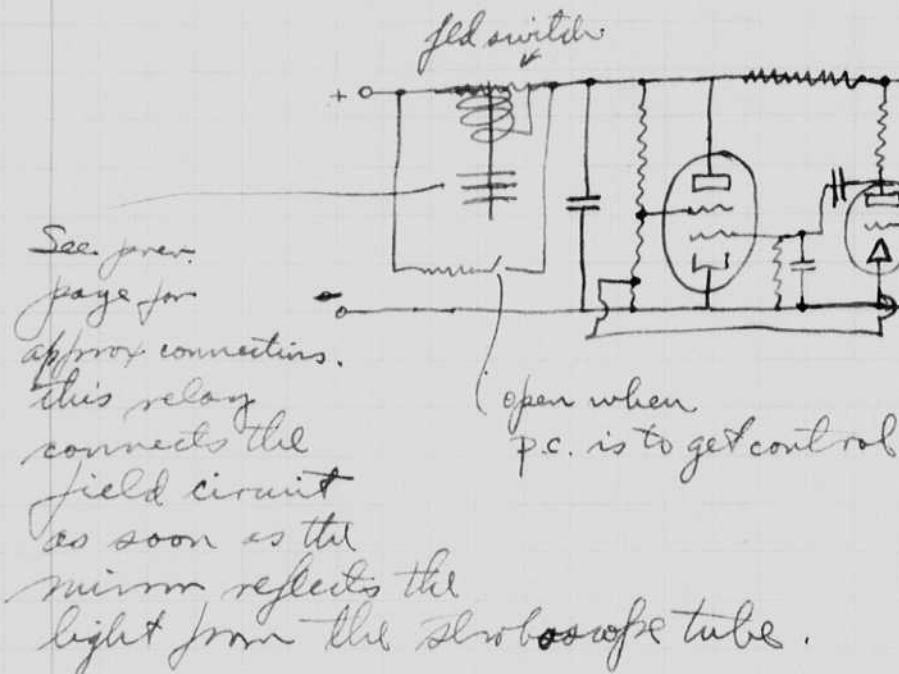 fld switch
+
See prev.
page for
-
approx connections.
this relay
connects the
field circuit
as soon as the
mirror reflects the
light from the stroboscope tube.
open when
p.c. is to get control